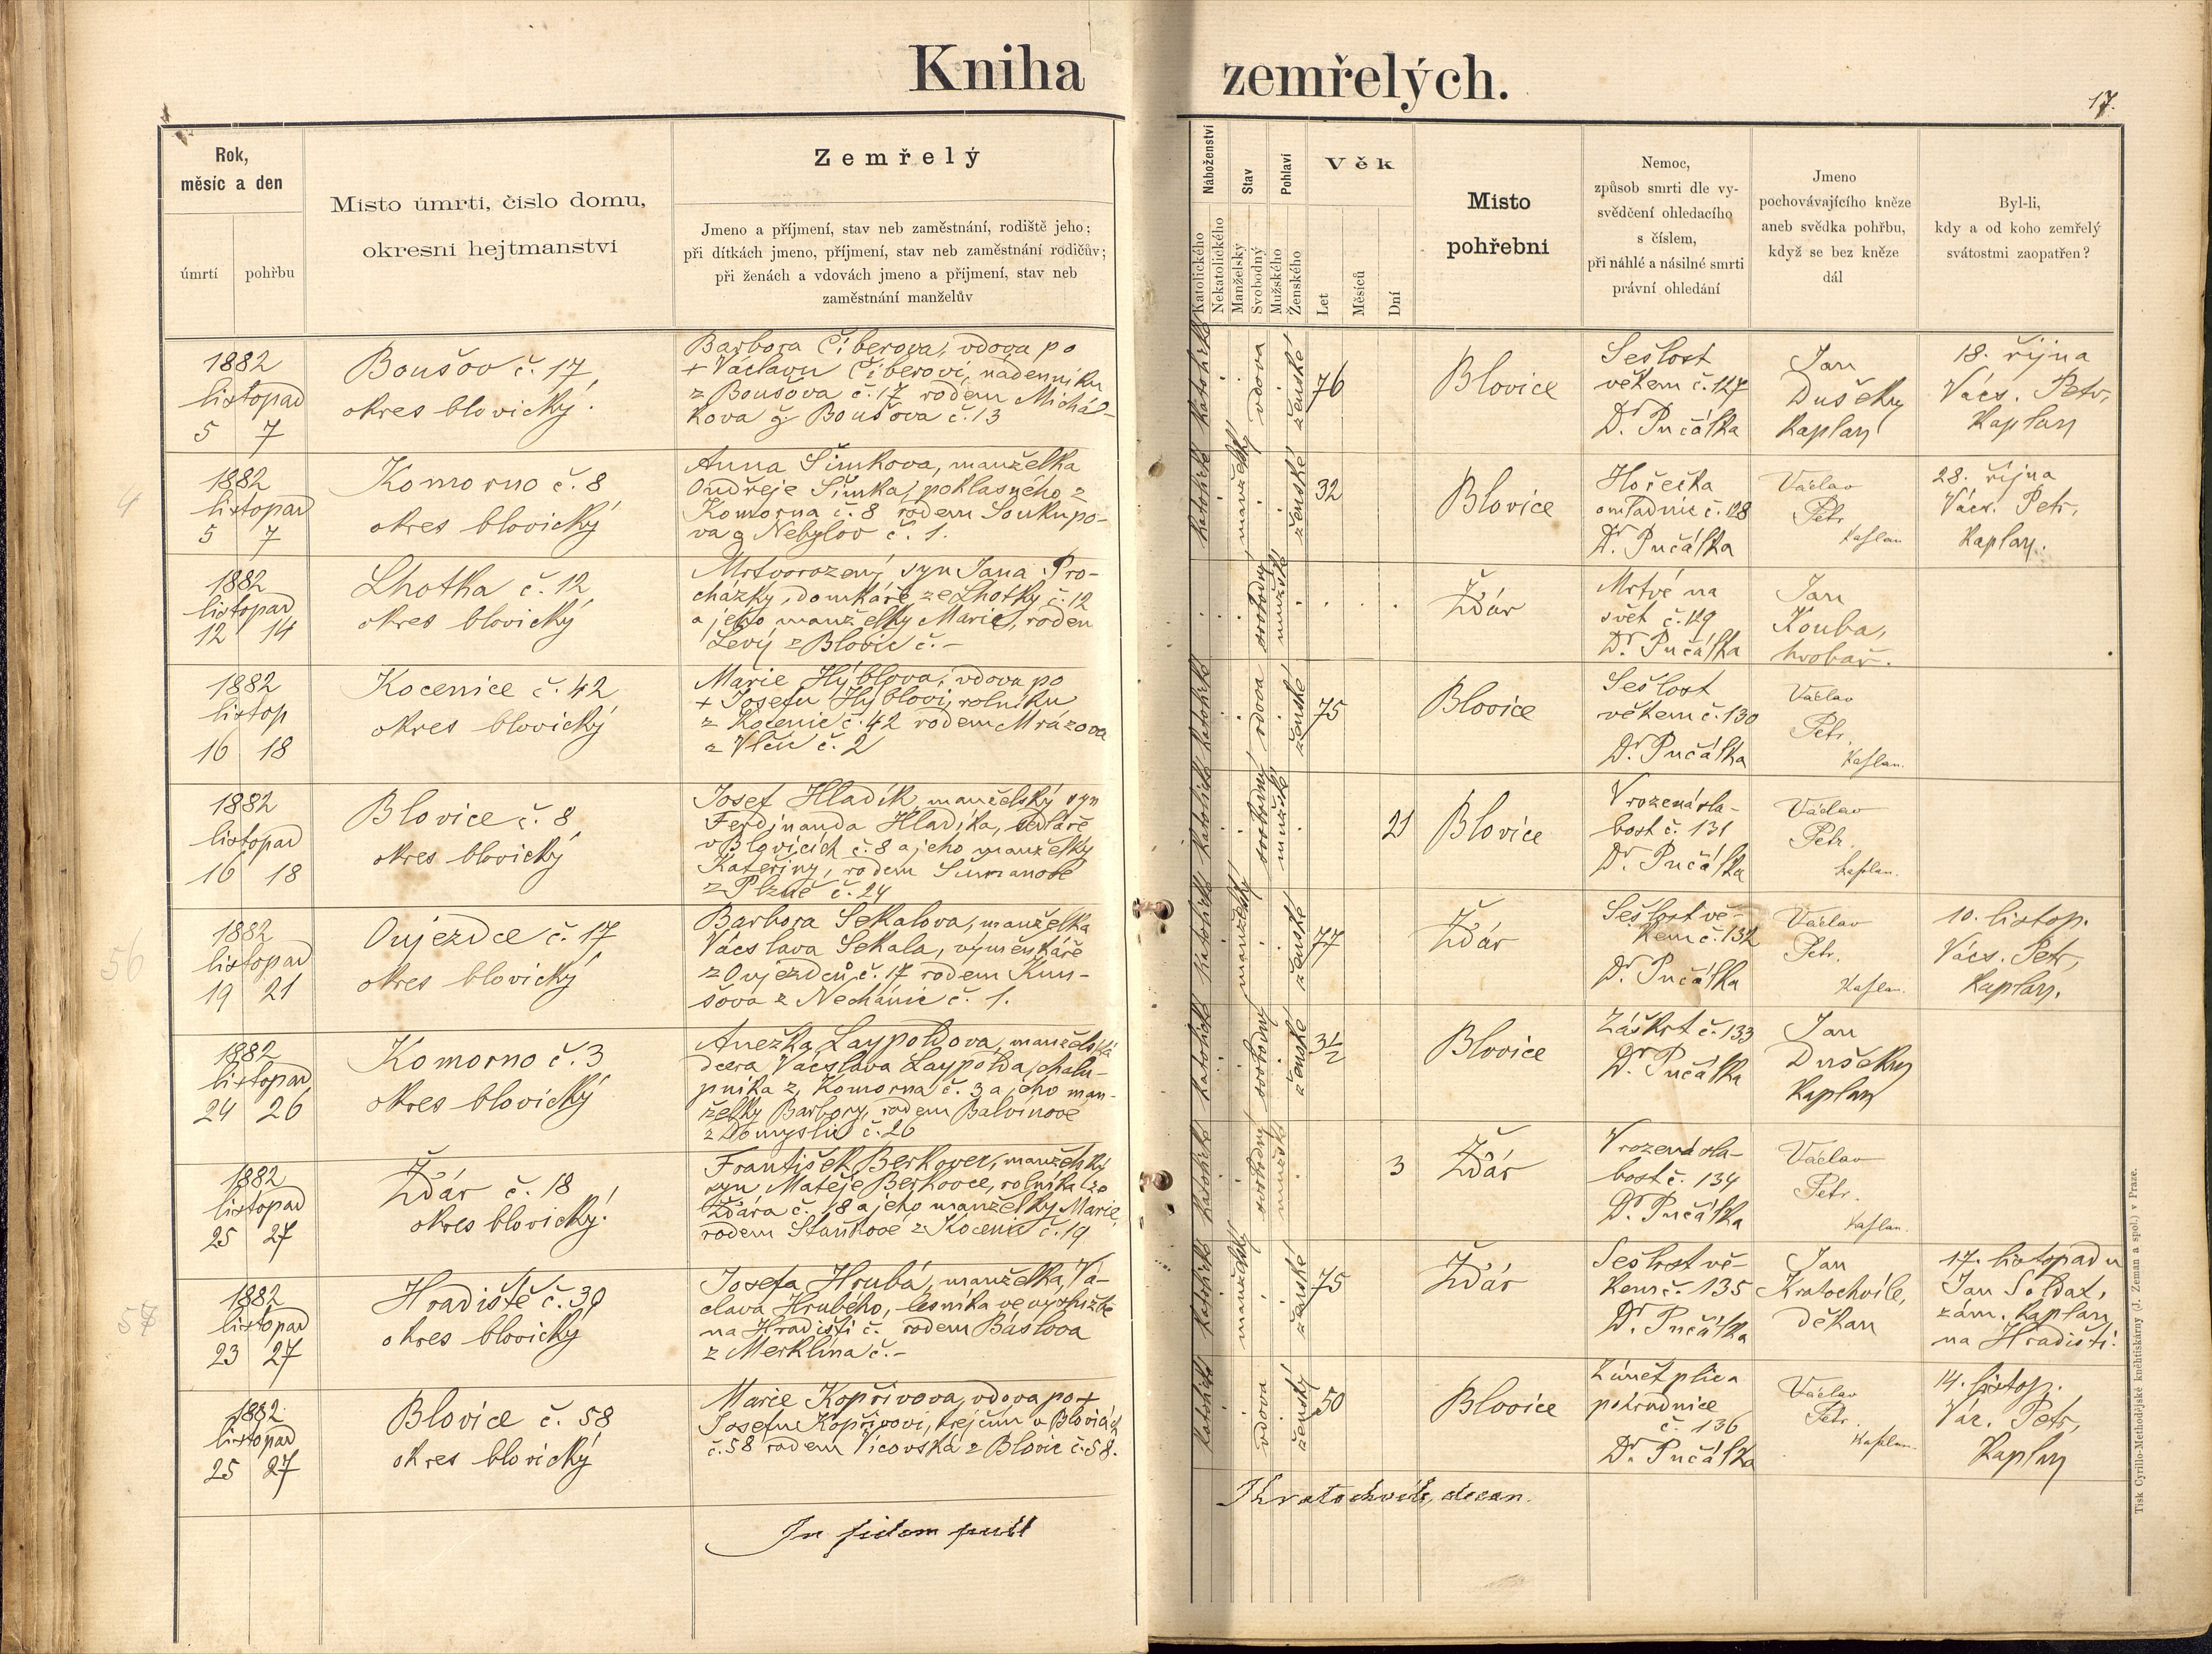 Kniha zemřelých.
17.
Rok,
měsíc a den
úmrtí
pohřbu
Místo úmrtí, číslo domu,
okresní hejtmanství
Zemřelý
Jmeno a příjmení, stav neb zaměstnání, rodiště jeho;
při dítkách jmeno, příjmení, stav neb zaměstnání rodičův;
při ženách a vdovách jmeno a příjmení, stav neb
zaměstnání manželův
Náboženství
Katolického
Nekatolického
Stav
Manželský
Svobodný
Pohlaví
Mužského
Ženského
Věk
Let
Měsíců
Dní
Místo
pohřební
Nemoc,
způsob smrti dle vy-
svědčení ohledacího
s číslem,
při náhlé a násilné smrti
právní ohledání
Jmeno
pochovávajícího kněze
aneb svědka pohřbu,
když se bez kněze
dál
Byl-li,
kdy a od koho zemřelý
svátostmi zaopatřen?
1882
listopad
5 7
Boušov č. 17
okres blovický.
Barbora Číberova, vdova po
+ Václavu Číberovi, nádenníku
z Boušova č. 17 rodem Michál-
kova z Boušova č. 13
katolické
vdova
ženské
76
Blovice
Sešlost
věkem č. 127
Dr. Pučálka
Jan
Dušek
kaplan
18. října
Václ. Petr,
kaplan
4
1882
listopad
5 7
Komorno č. 8
okres blovický
Anna Šimkova, manželka
Ondřeje Šimka, poklasného z
Komorna č. 8 rodem Soukupo-
va z Nebylov č. 1.
katolické
manželský
ženské
32
Blovice
Hořečka
omladnic č. 128
Dr. Pučálka
Václav
Petr
kaplan
28. října
Václ. Petr,
kaplan.
1882
listopad
12 14
Lhotka č. 12
okres blovický
Mrtvorozený syn Jana Pro-
cházky, domkáře ze Lhotky č. 12
a jeho manželky Marie, rodem
Levý z Blovic č. -
svobodný
mužské
Žďár
Mrtvé na
svět č. 129
Dr. Pučálka
Jan
Kouba,
hrobař.
1882
listop
16 18
Kocenice č. 42
okres blovický
Marie Hýblova, vdova po
+ Josefu Hýblovi, rolníku
z Kocenic č. 42 rodem Mrázova
z Vlčic č. 2
katolické
vdova
ženské
75
Blovice
Sešlost
věkem č. 130
Dr. Pučálka
Václav
Petr,
kaplan.
1882
listopad
16 18
Blovice č. 8
okres blovický
Josef Hladík, manželský syn
Ferdinanda Hladíka, sedláře
v Blovicích č. 8 a jeho manželky
Kateřiny, rodem Šimanové
z Plzně č. 24
katolické
svobodný
mužské
21
Blovice
Vrozená sla-
bost č. 131
Dr. Pučálka
Václav
Petr.
kaplan.
56
1882
listopad
19 21
Oujezdce č. 17
okres blovický
Barbora Sekalova, manželka
Václava Sekala, výměnkáře
z Oujezdců č. 17 rodem Kun-
šova z Nechánic č. 1.
katolické
manželský
ženské
77
Žďár
Sešlost vě-
kem č. 132
Dr. Pučálka
Václav
Petr.
kaplan.
10. listop.
Václ. Petr,
kaplan.
1882
listopad
24 26
Komorno č. 3
okres blovický
Anežka Laypoldova, manželská
dcera Václava Laypolda, chalu-
pníka z Komorna č. 3 a jeho man-
želky Barbory, rodem Balvínové
z Domyslic č. 26
katolické
svobodný
ženské
3 1/2
Blovice
Záškrt č. 133
Dr. Pučálka
Jan
Dušek
kaplan
1882
listopad
25 27
Žďár č. 18
okres blovický.
František Berkovec, manželský
syn Matěje Berkovce, rolníka ze
Žďára č. 18 a jeho manželky Marie,
rodem Staňkové z Kocenic č. 19
katolické
svobodný
mužské
3
Žďár
Vrozená sla-
bost č. 134
Dr. Pučálka
Václav
Petr.
kaplan.
57
1882
listopad
23 27
Hradiště č. 30
okres blovický
Josefa Hrubá, manželka Vá-
clava Hrubého, lesníka ve výslužbě
na Hradišti č. rodem Báslova
z Merklína č. -
katolické
manželský
ženské
75
Žďár
Sešlost vě-
kem č. 135
Dr. Pučálka
Jan
Kratochvíle,
děkan
17. listopadu
Jan Soldat,
zám. kaplan
na Hradišti.
1882
listopad
25 27
Blovice č. 58
okres blovický
Marie Kopřivova, vdova po +
Josefu Kopřivovi, krejčím v Blovicích
č. 58 rodem Vícovská z Blovic č. 58.
katolické
vdova
ženský
50
Blovice
Zánět plic a
pohrudnice
č. 136
Dr. Pučálka
Václav
Petr.
kaplan.
14. listop.
Vác. Petr,
kaplan
In fidem
Kratochvíle, decan.
Tisk Cyrillo-Methodějské knihtiskárny (J. Zeman a spol.) v Praze.